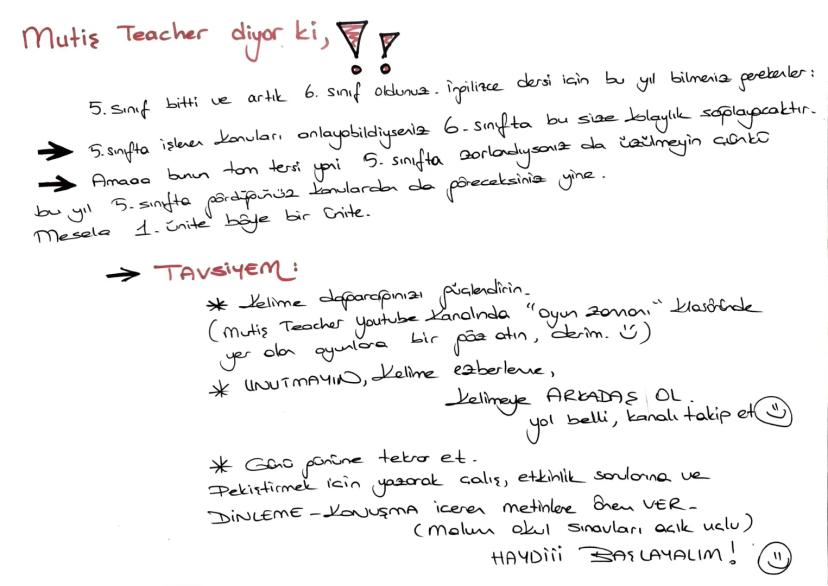 Mutiş Teacher diyor ki, !!
5. sınıf bitti ve artık 6. sınıf oldunuz. İngilizce dersi için bu yıl bilmeniz gerekenler:
→ 5. sınıfta işlenen konuları anlayabildiyseniz 6. sınıfta bu size kolaylık sağlayacaktır.
→ Amaaa bunun tam tersi yani 5. sınıfta zorlandıysanız da üzülmeyin çünkü
bu yıl 5. sınıfta gördüğünüz konulardan da göreceksiniz yine.
Mesela 1. ünite böyle bir ünite.
→ TAVSİYEM:
* Kelime dağarcığınızı güçlendirin.
(Mutiş Teacher youtube kanalında "oyun zamanı" klasöründe
yer alan oyunlara bir göz atın, derim. ü)
* UNUTMAYIN, kelime ezberleme,
kelimeye ARKADAŞ OL.
yol belli, kanalı takip et
* Günü gününe tekrar et.
Pekiştirmek için yazarak çalış, etkinlik sorularına ve
DİNLEME - KONUŞMA içeren metinlere önem VER-
(Malum okul sınavları açık uçlu)
HAYDİİİ BAŞLAYALIM!